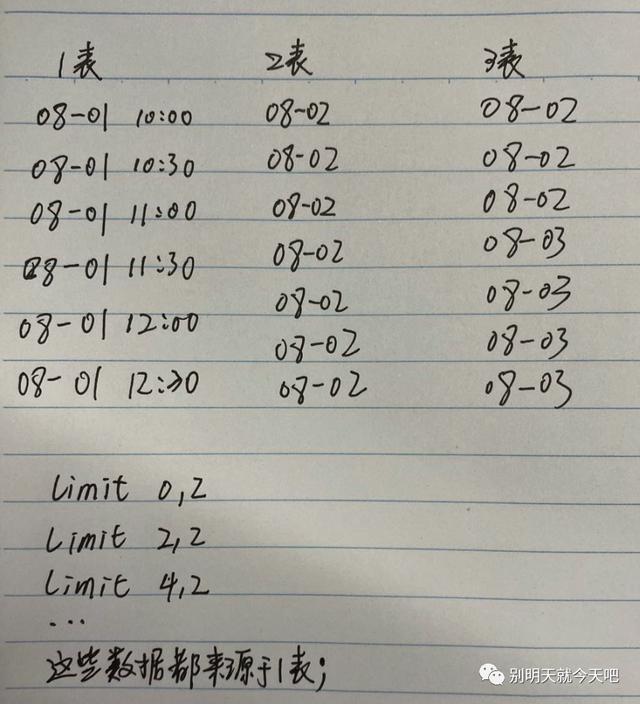 1表 2表 3表
08-01 10:00 08-02 08-02
08-01 10:30 08-02 08-02
08-01 11:00 08-02 08-02
08-01 11:30 08-02 08-03
08-01 12:00 08-02 08-03
08-02 08-03
08-01 12:30 08-02 08-03
limit 0,2
Limit 2,2
limit 4,2
...
这些数据都来源于1表;
别明天就今天吧